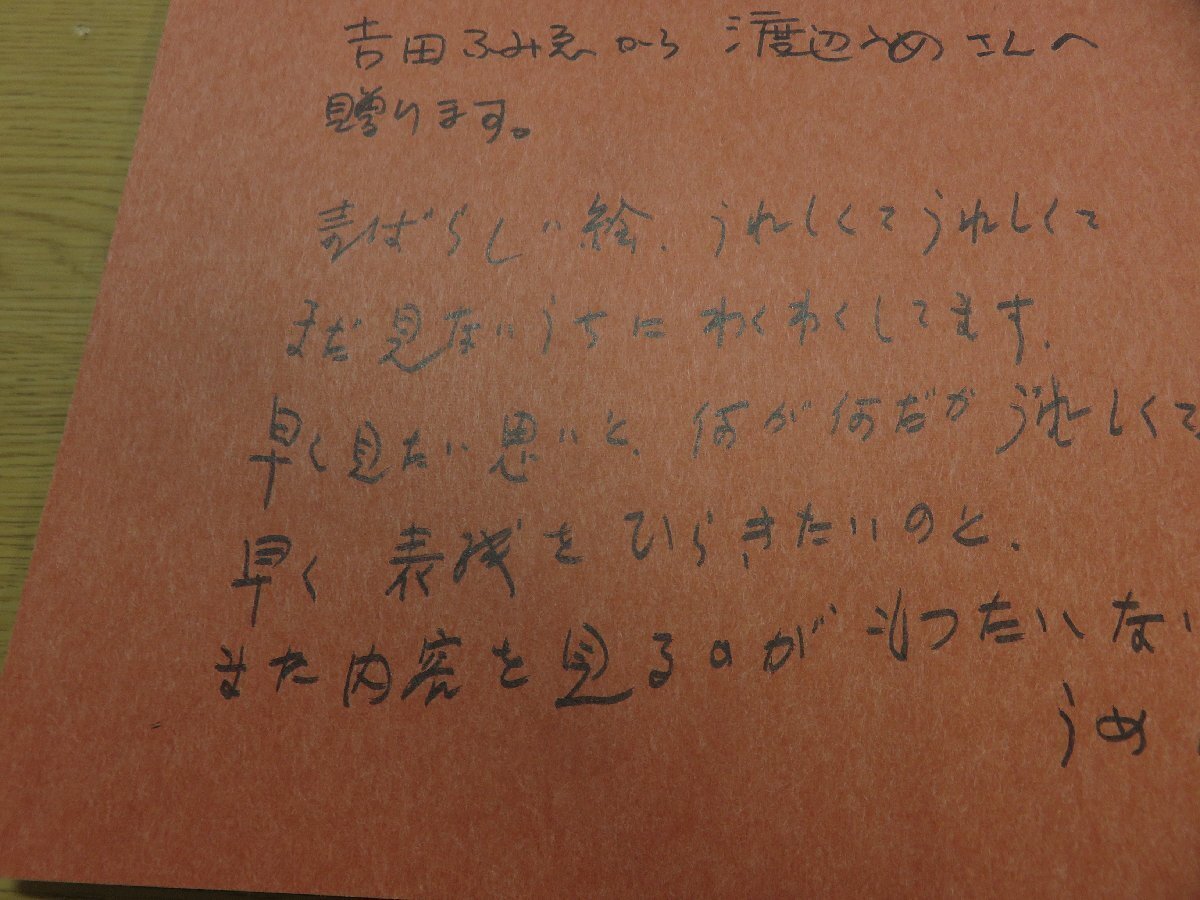 吉田ふみゑから 渡辺うめさんへ
贈ります。
素ばらしい絵、うれしくてうれしくて
まだ見ないうちにわくわくしてます、
早く見たい思いと、何が何だかうれしくて、
早く 表残をひらきたいのと、
また内容を見るのがもつたいない
うめ